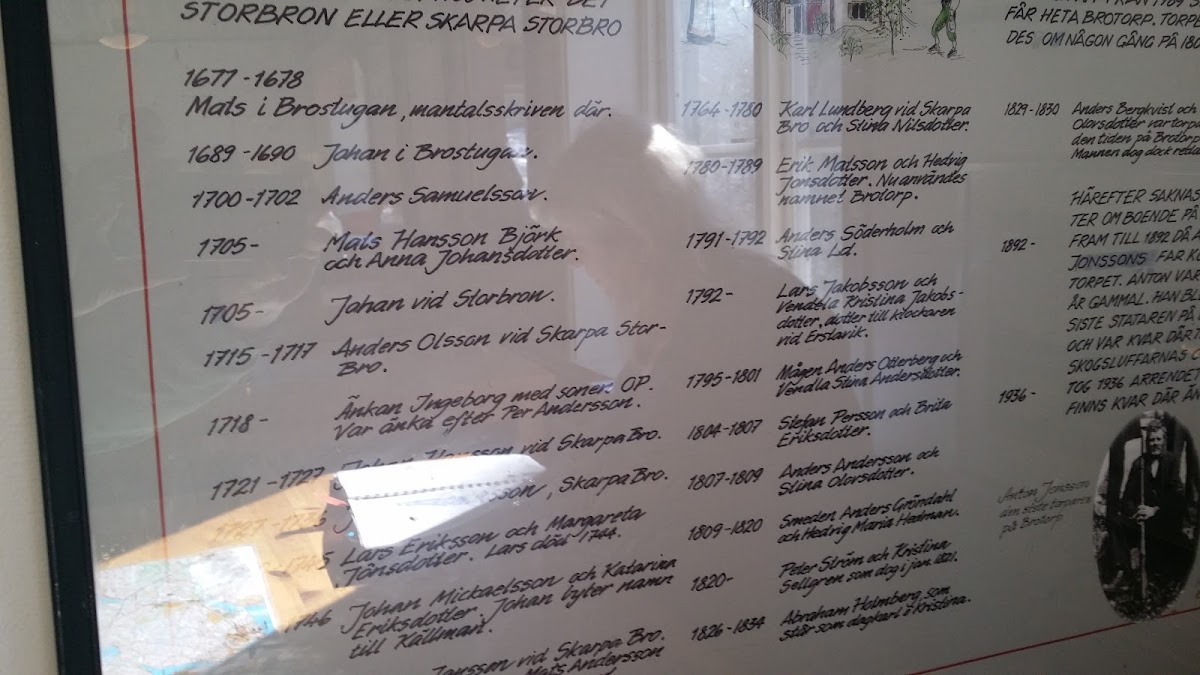 STORBRON ELLER SKARPA STORBRO
1677-1678
Mats i Brostugan, mantalsskriven där.
1689-1690 Johan i Brostugan.
1700-1702 Anders Samuelsson.
1705- Mats Hansson Björk
och Anna Johansdotter.
1705- Johan vid Storbron.
1715-1717 Anders Olsson vid Skarpa Stor-
Bro.
1718- Änkan Ingeborg med soner. OP.
Var änka efter Per Andersson.
1721-1727 Johan vid Skarpa Bro.
Skarpa Bro.
Lars Eriksson och Margareta
Jönsdotter. Lars död 1744.
1746 Johan Mickaelsson och Katarina
Eriksdotter. Johan byter namn
till Källman.
Jansson vid Skarpa Bro.
Mats Andersson
1764-1780 Karl Lundberg vid Skarpa
Bro och Stina Nilsdotter.
1780-1789 Erik Matsson och Hedvig
Jonsdotter. Nu användes
namnet Brotorp.
1791-1792 Anders Söderholm och
Stina Ld.
1792- Lars Jakobsson och
Vendela Kristina Jakobs-
dotter, dotter till klockaren
vid Erslavik.
1795-1801 Mågen Anders Otterberg och
Vendla Stina Andersdotter.
1804-1807 Stefan Persson och Brita
Eriksdotter.
1807-1809 Anders Andersson och
Stina Olovsdotter.
1809-1820 Smeden Anders Gröndahl
och Hedvig Maria Hedman.
1820- Peter Ström och Kristina
Sellgren som dog i jan. 1821.
1826-1834 Abraham Holmberg som
står som dagkarl o Kristina.
FÅR HETA BROTORP. TORPE
DES OM NÅGON GÅNG PÅ 180
1829-1830 Anders Bergkvist och
Olovsdotter var torpa
den tiden på Brotorp
Mannen dog dock redan
HÄREFTER SAKNAS
TER OM BOENDE PÅ
1892- FRAM TILL 1892 DÅ A
JONSSONS FAR KO
TORPET. ANTON VAR
ÅR GAMMAL. HAN BL
SISTE STATAREN PÅ
OCH VAR KVAR DÄR
SKOGSLUFFARNAS C
1936- TOG 1936 ARRENDET
FINNS KVAR DÄR ÄN
Anton Jonsson
den siste torparen
på Brotorp